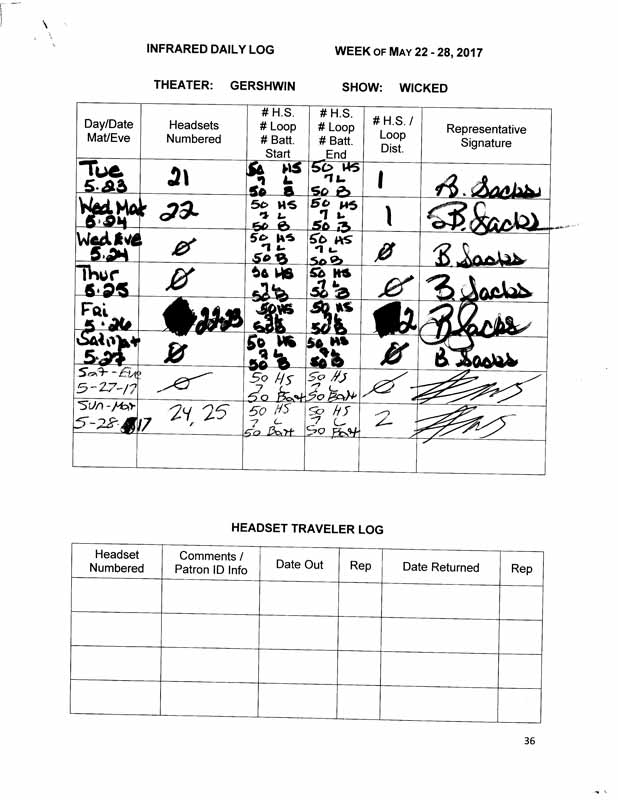 INFRARED DAILY LOG WEEK OF MAY 22 - 28, 2017
THEATER: GERSHWIN SHOW: WICKED
Day/Date
Mat/Eve
Headsets
Numbered
# H.S.
# Loop
# Batt.
Start
# H.S.
# Loop
# Batt.
End
# H.S. /
Loop
Dist.
Representative
Signature
Tue
5.23
21
50 HS
7 L
50 B
50 HS
7L
50 B
1
B. Sacks
Wed Mat
5.24
22
50 HS
7 L
50 B
50 HS
7 L
50 B
1
B. Sacks
Wed Eve
5.24
Ø
50 HS
7 L
50 B
50 HS
7 L
50 B
Ø
B Sacks
Thur
5.25
Ø
50 HS
7L
50 B
50 HS
7L
50 B
Ø
B Sacks
Fri
5.26
22-23
50 HS
7L
50 B
50 HS
7L
50 B
2
B Sacks
Sat Mat
5.27
Ø
50 HS
7 L
50 B
50 HS
7 L
50 B
Ø
B. Sacks
Sat-Eve
5-27-17
Ø
50 HS
7 L
50 Batt
50 HS
7 L
50 Batt
Ø
Sun-Mat
5-28-17
24, 25
50 HS
7 L
50 Batt
50 HS
7 L
50 Batt
2
HEADSET TRAVELER LOG
Headset
Numbered
Comments /
Patron ID Info
Date Out
Rep
Date Returned
Rep
36